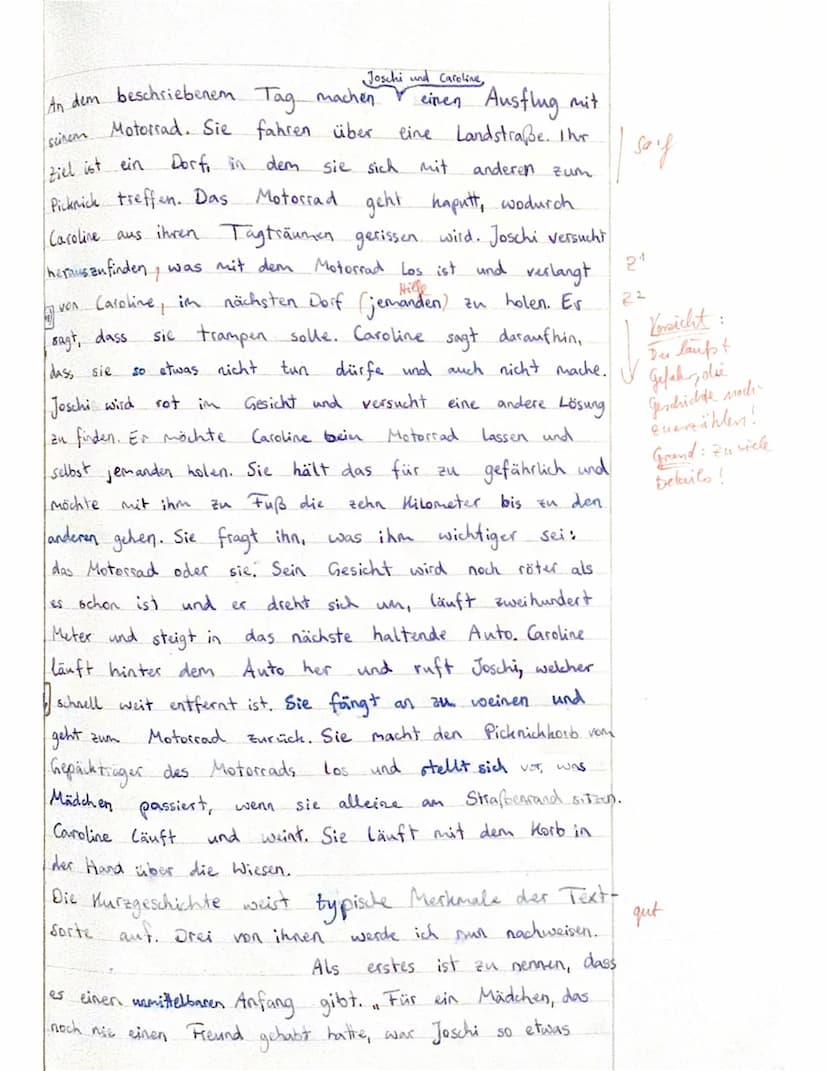 Joschi und Caroline,
An dem beschriebenem Tag machen einen Ausflug mit
seinem Motorrad. Sie fahren über eine Landstraße. Ihr
Ziel ist ein Dorf, in dem sie sich mit anderen zum
Picknick treffen. Das Motorrad geht kaputt, wodurch
Caroline aus ihren Tagträumen gerissen wird. Joschi versucht
herauszufinden, was mit dem Motorrad los ist und verlangt
Z1
Hilfe
von Caroline, im nächsten Dorf (jemanden) zu holen. Er
Z2
sagt, dass sie trampen solle. Caroline sagt daraufhin,
dass sie so etwas nicht tun dürfe und auch nicht mache.
Joschi wird rot im Gesicht und versucht eine andere Lösung
zu finden. Er möchte Caroline beim Motorrad lassen und
selbst jemanden holen. Sie hält das für zu gefährlich und
möchte mit ihm zu Fuß die zehn Kilometer bis zu den
anderen gehen. Sie fragt ihn, was ihm wichtiger sei:
das Motorrad oder sie. Sein Gesicht wird noch röter als
es schon ist und er dreht sich um, läuft zweihundert
Meter und steigt in das nächste haltende Auto. Caroline
läuft hinter dem Auto her und ruft Joschi, welcher
schnell weit entfernt ist. Sie fängt an zu weinen und
geht zum Motorrad zurück. Sie macht den Picknickkorb vom
Gepäckträger des Motorrads los und stellt sich vor, was
Mädchen passiert, wenn sie alleine am Straßenrand sitzen.
Caroline läuft und weint. Sie läuft mit dem Korb in
der Hand über die Wiesen.
Die Kurzgeschichte weist typische Merkmale der Text-
sorte auf. Drei von ihnen werde ich nun nachweisen.
Als erstes ist zu nennen, dass
es einen unmittelbaren Anfang gibt. „Für ein Mädchen, das
noch nie einen Freund gehabt hatte, war Joschi so etwas
Vorsicht:
Du läufst
Gefahr, die
Geschichte nach-
zuerzählen!
Grund: zu viele
Details!
gut